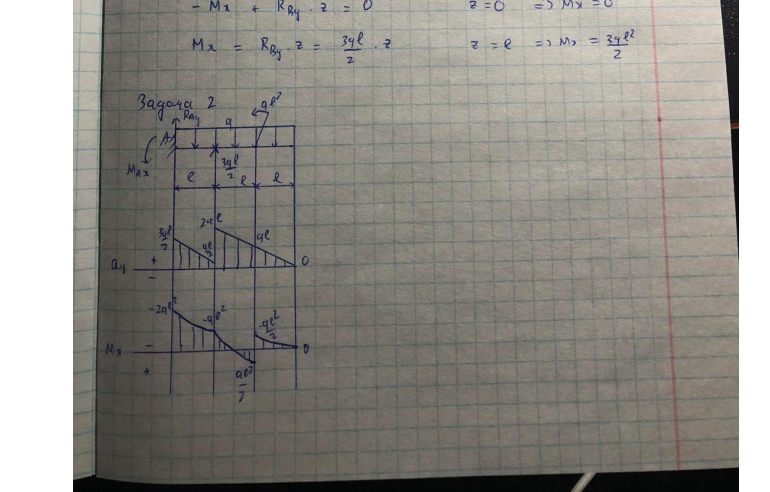 - Mx + RBy · z = 0 z=0 => Mx = 0
Mx = RBy · z = 3ql/2 · z z = l => Mx = 3ql²/2
Задача 2
RAy q ql²
A
MAx 3ql/2
l l l
3ql/2 ql/2 2ql ql
Qy + 0
-
-2ql² -ql² -ql²/2
Mx - 0
+ ql²/2